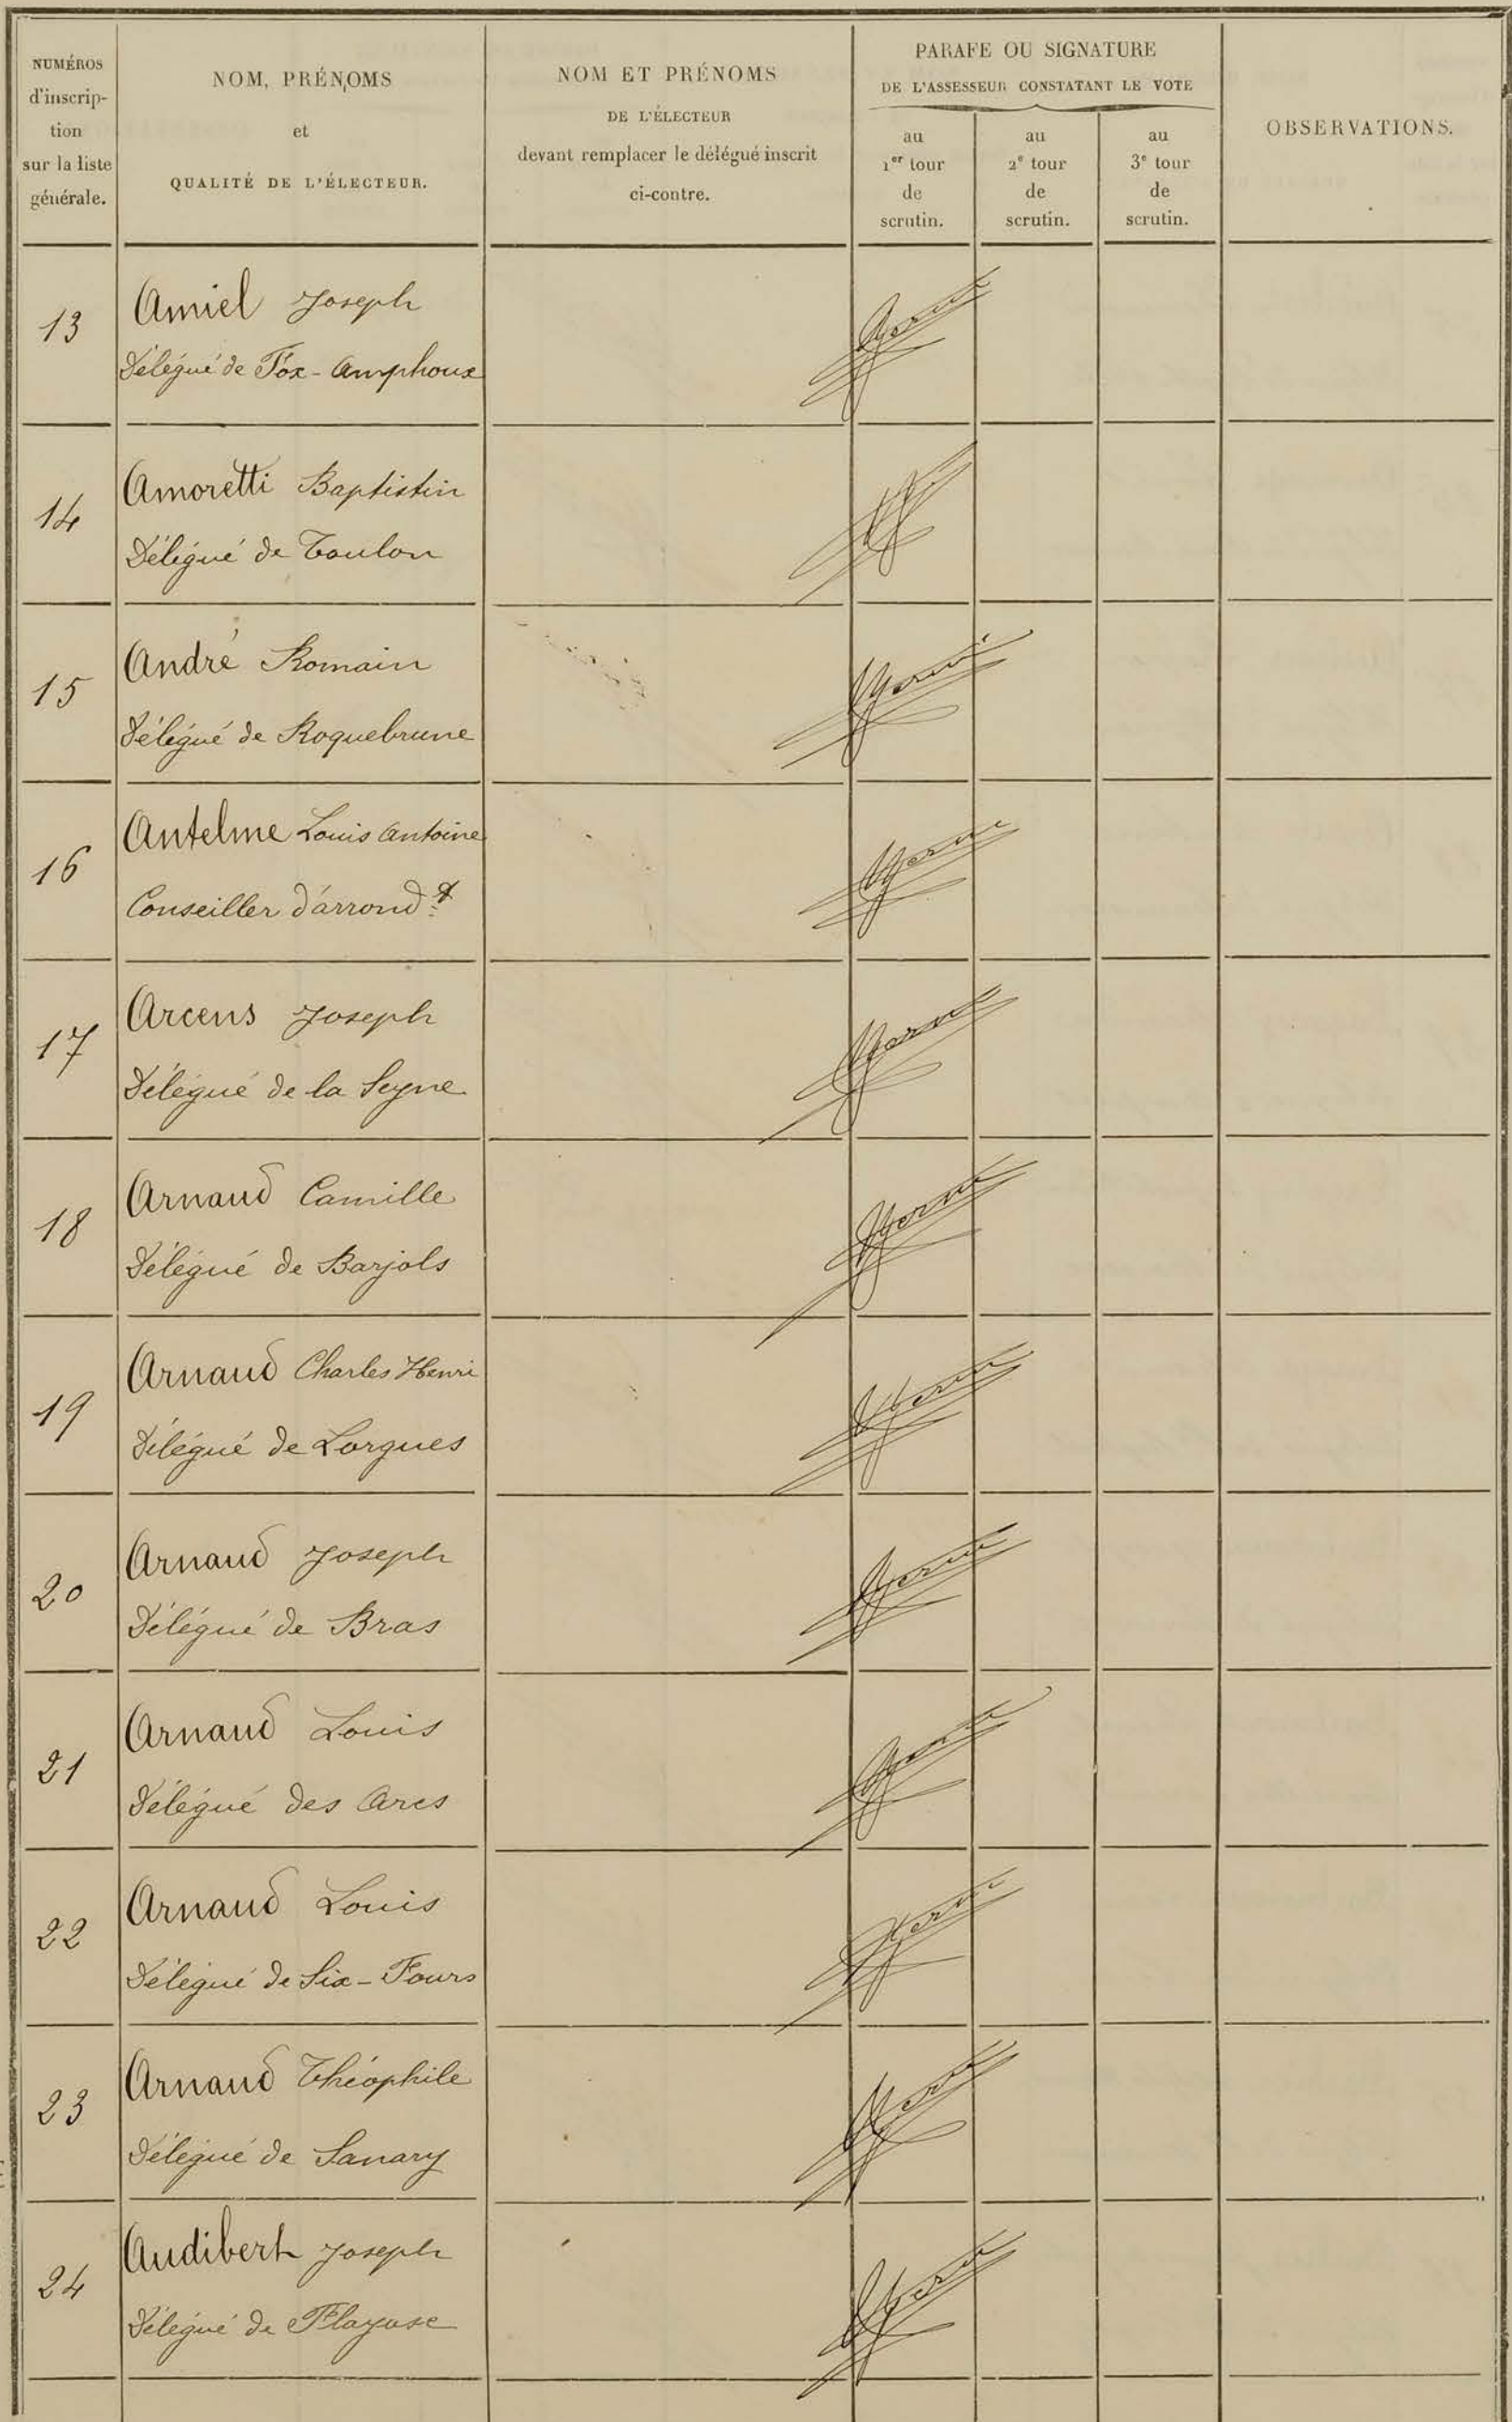 NUMÉROS
d'inscrip-
tion
sur la liste
générale.
NOM, PRÉNOMS
et
QUALITÉ DE L'ÉLECTEUR.
NOM ET PRÉNOMS
DE L'ÉLECTEUR
devant remplacer le délégué inscrit
ci-contre.
PARAFE OU SIGNATURE
DE L'ASSESSEUR CONSTATANT LE VOTE
au
1er tour
de
scrutin.
au
2e tour
de
scrutin.
au
3e tour
de
scrutin.
OBSERVATIONS.
13
Amiel Joseph
Délégué de Fox-Amphoux
14
Amoretti Baptistin
Délégué de Toulon
15
André Romain
Délégué de Roquebrune
16
Antelme Louis Antoine
Conseiller d'arrondt
17
Arcens Joseph
Délégué de la Seyne
18
Arnaud Camille
Délégué de Barjols
19
Arnaud Charles Henri
Délégué de Lorgues
20
Arnaud Joseph
Délégué de Bras
21
Arnaud Louis
Délégué des Arcs
22
Arnaud Louis
Délégué de Six-Fours
23
Arnaud Théophile
Délégué de Sanary
24
Audibert Joseph
Délégué de Flayosc